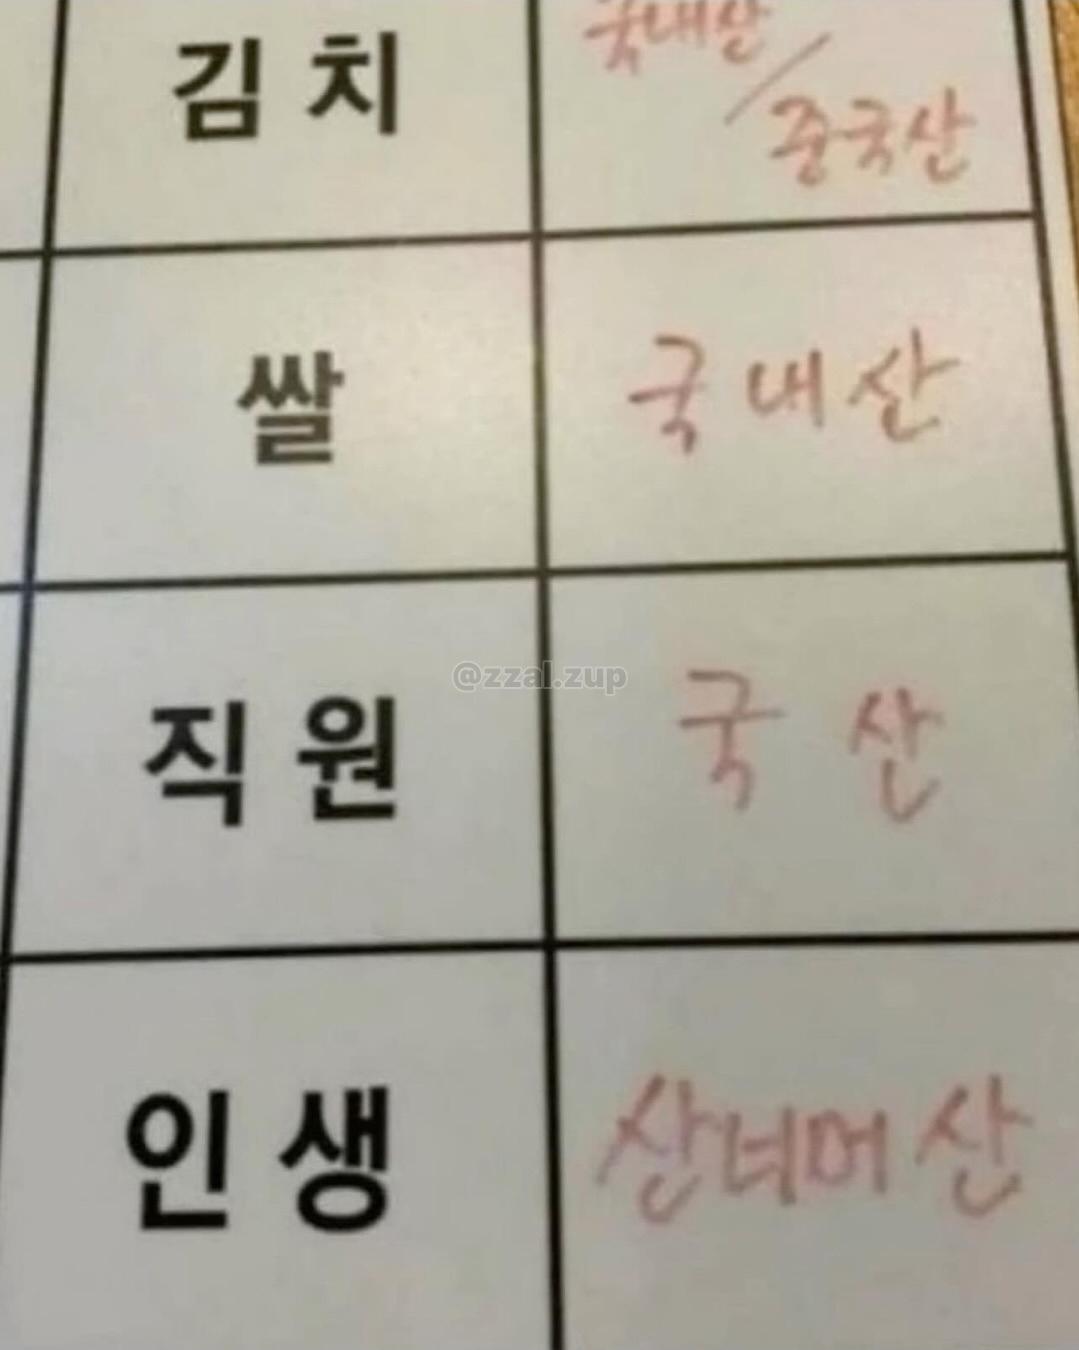 김치 국내산/
중국산
쌀 국내산
직원 국산
@zzal.zup
인생 산네머산